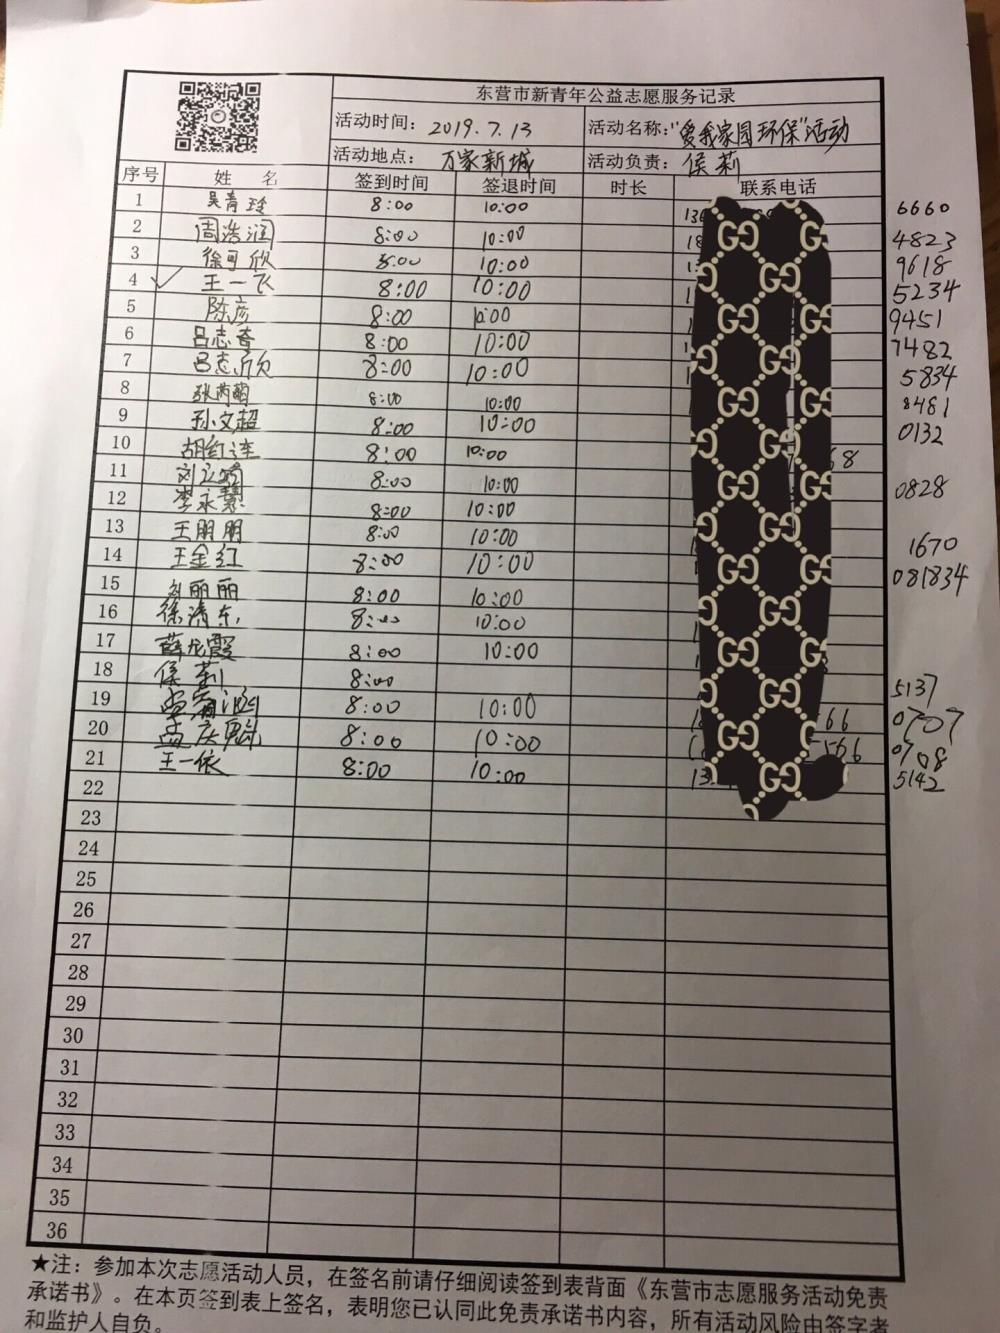 东营市新青年公益志愿服务记录
活动时间：2019.7.13 活动名称："爱我家园环保"活动
活动地点：万家新城 活动负责：侯莉
序号 姓 名 签到时间 签退时间 时长 联系电话
1 吴青玲 8:00 10:00 6660
2 周浩润 8:00 10:00 4823
3 徐可欣 8:00 10:00 9618
4 王一飞 8:00 10:00 5234
5 陈彦 8:00 10:00 9451
6 吕志奇 8:00 10:00 7482
7 吕志欣 8:00 10:00 5834
8 8:00 10:00 8481
9 孙文超 8:00 10:00 0132
10 胡红连 8:00 10:00 68
11 8:00 10:00 0828
12 李永慧 8:00 10:00
13 王朋朋 8:00 10:00 1670
14 王金红 8:00 10:00 081834
15 刘丽丽 8:00 10:00
16 徐清东 8:00 10:00
17 薛龙霞 8:00 10:00
18 侯莉 8:00 5137
19 8:00 10:00 66 0707
20 孟庆魁 8:00 10:00 566 0708
21 王一依 8:00 10:00 13 5142
22
23
24
25
26
27
28
29
30
31
32
33
34
35
36
★注：参加本次志愿活动人员，在签名前请仔细阅读签到表背面《东营市志愿服务活动免责
承诺书》。在本页签到表上签名，表明您已认同此免责承诺书内容，所有活动风险由签字者
和监护人自负。